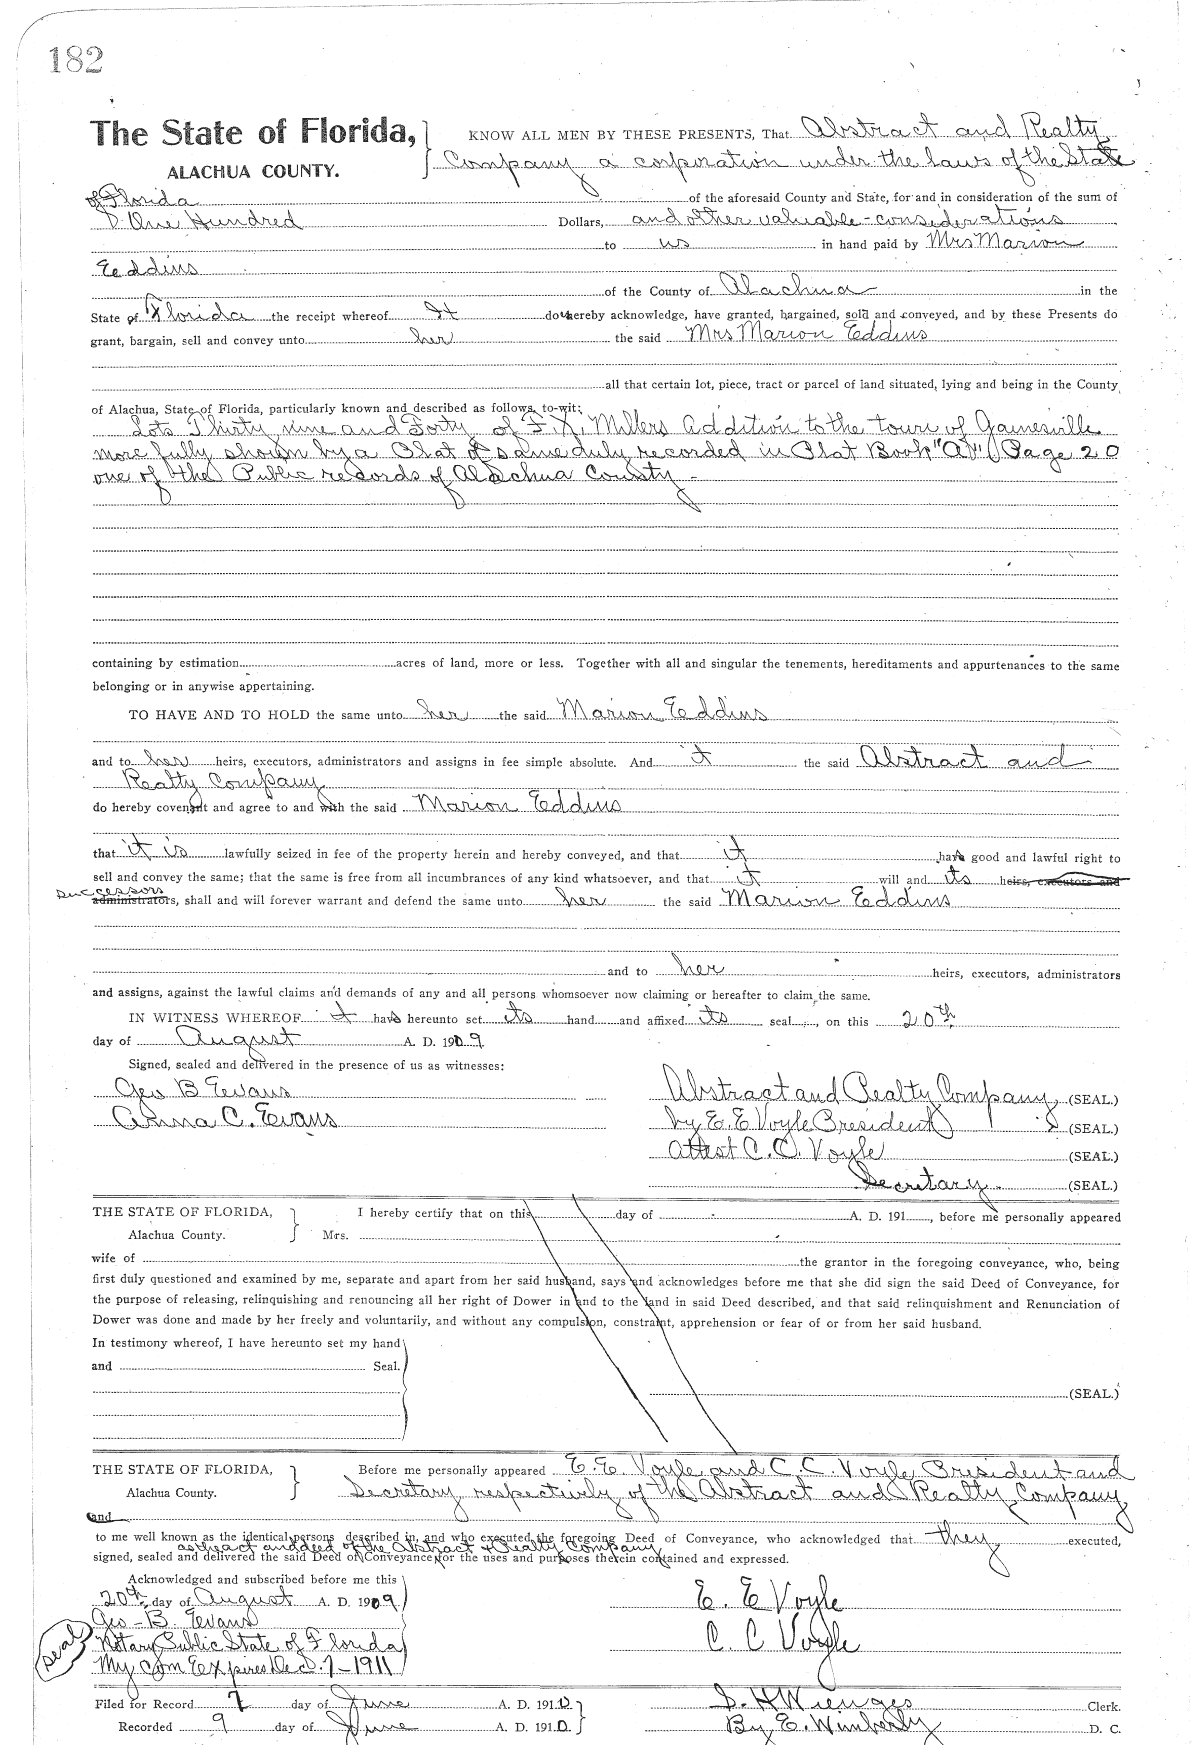 182
The State of Florida,
ALACHUA COUNTY.
KNOW ALL MEN BY THESE PRESENTS, That Abstract and Realty
Company a corporation under the laws of the State
of Florida of the aforesaid County and State, for and in consideration of the sum of
One Hundred Dollars, and other valuable considerations
to us in hand paid by Mrs Marion
Eddins
of the County of Alachua in the
State of Florida the receipt whereof It does hereby acknowledge, have granted, bargained, sold and conveyed, and by these Presents do
grant, bargain, sell and convey unto her the said Mrs Marion Eddins
all that certain lot, piece, tract or parcel of land situated, lying and being in the County
of Alachua, State of Florida, particularly known and described as follows, to-wit:
Lots Thirty nine and Forty of F. X. Millers addition to the town of Gainesville
more fully shown by a Plat of same duly recorded in Plat Book "A" Page 20
one of the Public records of Alachua County -
containing by estimation acres of land, more or less. Together with all and singular the tenements, hereditaments and appurtenances to the same
belonging or in anywise appertaining.
TO HAVE AND TO HOLD the same unto her the said Marion Eddins
and to her heirs, executors, administrators and assigns in fee simple absolute. And it the said Abstract and
Realty Company
do hereby covenant and agree to and with the said Marion Eddins
that it is lawfully seized in fee of the property herein and hereby conveyed, and that it has good and lawful right to
sell and convey the same; that the same is free from all incumbrances of any kind whatsoever, and that it will and its heirs, executors and
successors
administrators, shall and will forever warrant and defend the same unto her the said Marion Eddins
and to her heirs, executors, administrators
and assigns, against the lawful claims and demands of any and all persons whomsoever now claiming or hereafter to claim the same.
IN WITNESS WHEREOF it has hereunto set its hand and affixed its seal, on this 20th
day of August A. D. 1909
Signed, sealed and delivered in the presence of us as witnesses:
Geo B Evans
Anna C. Evans
Abstract and Realty Company (SEAL.)
by E. E Voyle President (SEAL.)
Attest C. C. Voyle (SEAL.)
Secretary (SEAL.)
THE STATE OF FLORIDA,
Alachua County.
I hereby certify that on this day of A. D. 191, before me personally appeared
Mrs.
wife of the grantor in the foregoing conveyance, who, being
first duly questioned and examined by me, separate and apart from her said husband, says and acknowledges before me that she did sign the said Deed of Conveyance, for
the purpose of releasing, relinquishing and renouncing all her right of Dower in and to the land in said Deed described, and that said relinquishment and Renunciation of
Dower was done and made by her freely and voluntarily, and without any compulsion, constraint, apprehension or fear of or from her said husband.
In testimony whereof, I have hereunto set my hand
and Seal.
(SEAL.)
THE STATE OF FLORIDA,
Alachua County.
Before me personally appeared E. E. Voyle and C. C. Voyle President and
Secretary respectively of the Abstract and Realty Company
and
to me well known as the identical persons described in, and who executed the foregoing Deed of Conveyance, who acknowledged that they executed,
as the act and deed of the Abstract & Realty Company
signed, sealed and delivered the said Deed of Conveyance for the uses and purposes therein contained and expressed.
Acknowledged and subscribed before me this
20th day of August A. D. 1909
Geo - B Evans
Notary Public State of Florida
My Com Expires Dec. 7 - 1911
Seal
E. E Voyle
C. C Voyle
Filed for Record 7 day of June A. D. 1910
Recorded 9 day of June A. D. 1910.
S. H Wienges Clerk.
By E. Wimberly D. C.